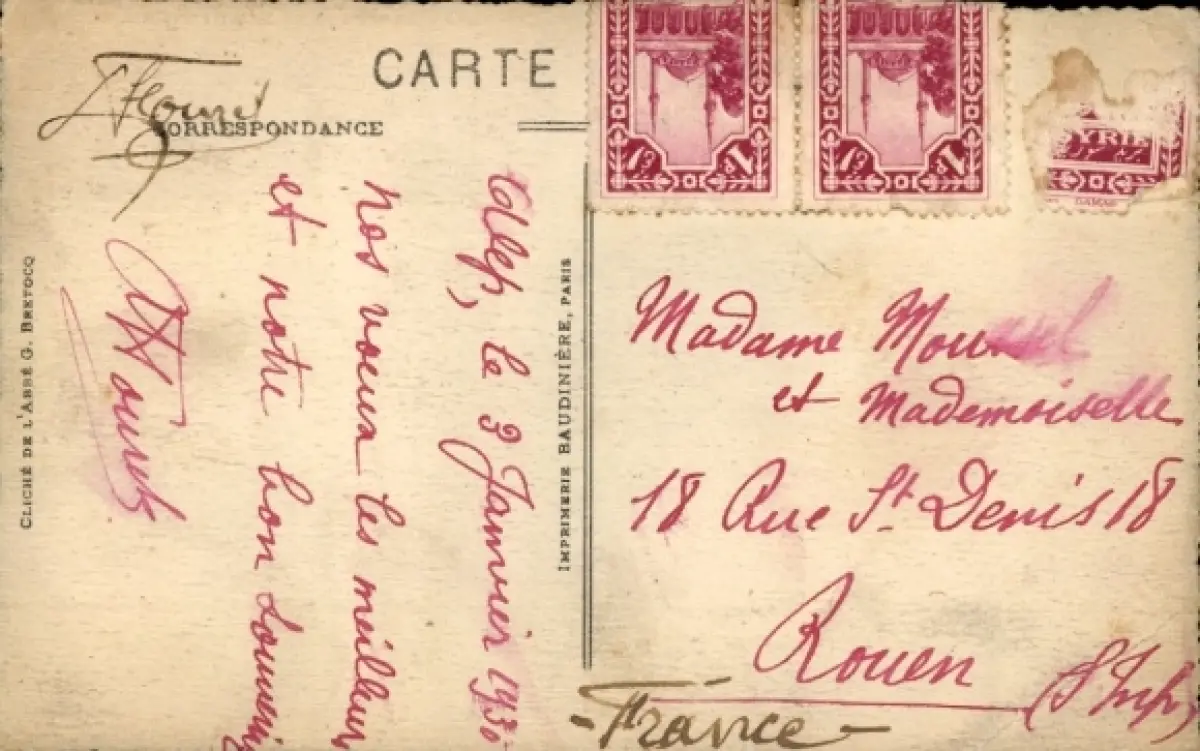 CARTE
CORRESPONDANCE
Alep, le 3 Janvier 1930
Nos voeux les meilleurs
et notre bon souvenir
CLICHÉ DE L'ABBÉ G. BRETOCQ
IMPRIMERIE BAUDINIÈRE, PARIS
1P
1P
SYRIE
DAMAS
Madame
et Mademoiselle
18 Rue St Denis 18
Rouen
(S Inf)
- France -